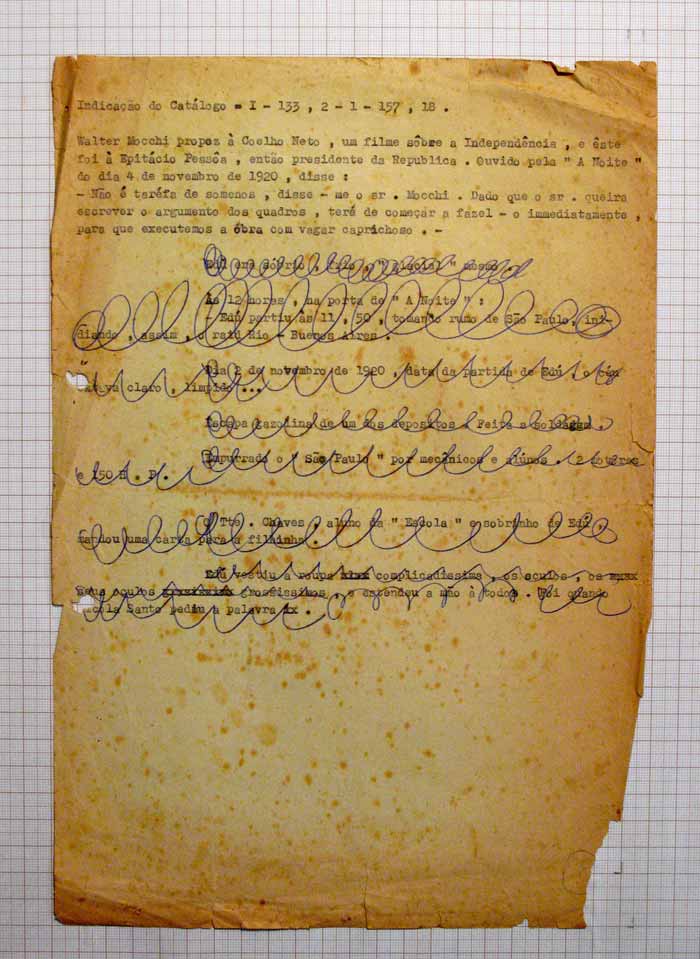 Indicação do Catálogo = I - 133 , 2 - 1 - 157 , 18 .
Walter Mocchi propoz à Coelho Neto , um filme sôbre a Independência , e êste
foi à Epitácio Pessôa , então presidente da Republica . Ouvido pela " A Noite "
do dia 4 de novembro de 1920 , disse :
- Não é taréfa de somenos , disse - me o sr . Mocchi . Dado que o sr . queira
escrever o argumento dos quadros , teré de começar a fazel - o immediatamente ,
para que executemos a óbra com vagar caprichoso . -
Edú era sobrio ,
Às 12 horas , na porta de " A Noite " :
- Edú partiu às 11 , 50 , tomando rumo de São Paulo, ini-
diando , assim , o raid Rio - Buenos Aires .
Dia 2 de novembro de 1920 , data da partida de Edú . o céu
tava claro , limpido ...
Escapa gazolina de um dos depositos . Feita a soldagem .
Empurrado o " São Paulo " por mecânicos e alunos . 2 motores
e 150 H . P .
O Tte . Chaves , aluno da " Escola " e sobrinho de Edú
mandou uma carta para a filhinha .
Edú vestiu a roupa xxxx complicadissima , os oculos , os
seus oculos grossissimos , e estendeu a mão à todos . Foi quando
cola Santo pediu a palavra xx .